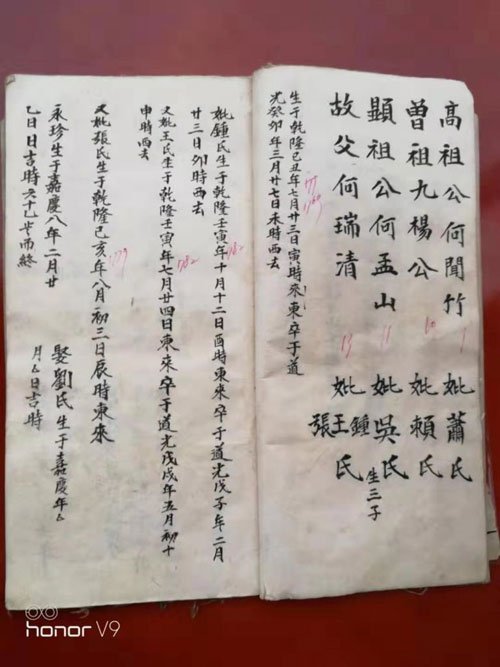 高祖公何聞竹 妣蕭氏
曾祖九楊公 10 妣賴氏
顯祖公何孟山 11 妣吳氏 生三子
故父何瑞清 13 妣鍾王張氏
生于乾隆己丑年七月廿三日寅時來東卒于道
光癸卯年三月廿七日未時西去
妣鍾氏生于乾隆壬寅年十月十二日酉時東來卒于道光戊子年二月
廿三日卯時西去
又妣王氏生于乾隆壬寅年七月廿四日東來卒于道光戊戌年五月初十
申時西去
又妣張氏生于乾隆己亥年八月初三日辰時東來
1779
永珍生于嘉慶八年二月廿
乙日日吉時六十七岁而終
娶劉氏生于嘉慶年厶
月厶日吉時
honor V9